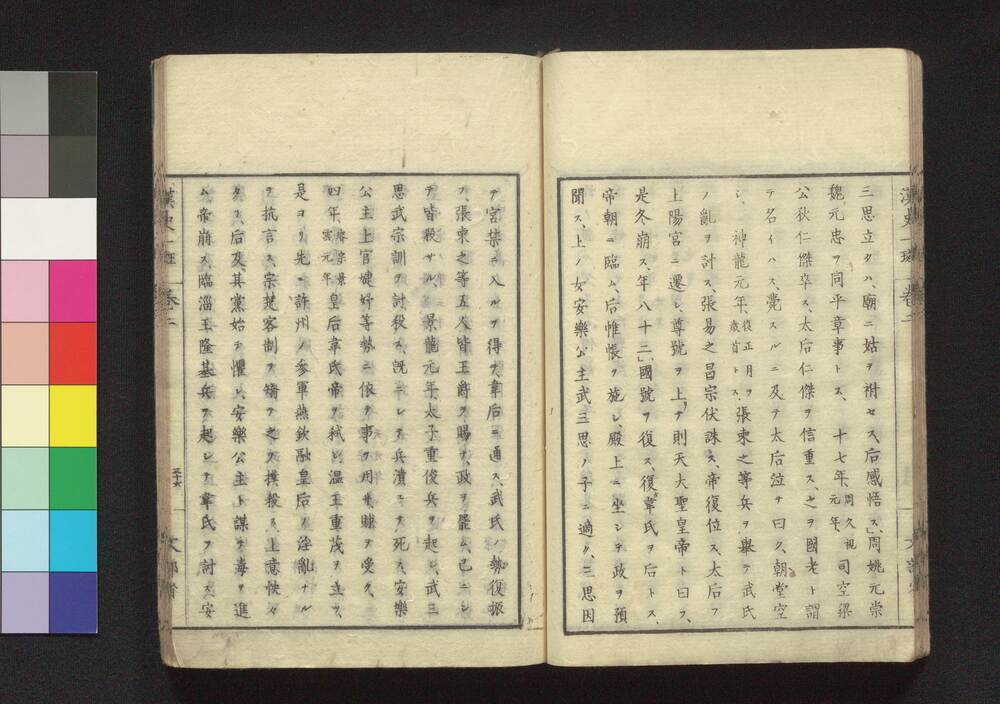 三思立タハ、廟ニ姑ヲ祔セス、后感悟ス」周姚元崇
魏元忠ヲ同平章事トス、十七年、周久視元年、司空梁
公狄仁傑卒ス、太后仁傑ヲ信重ス、之ヲ國老ト謂
テ名イハス、薨スルニ及テ太后泣テ曰ク、朝堂空
シ、神龍元年、復正月ヲ歳首トス、張柬之等兵ヲ舉テ武氏
ノ亂ヲ討ス、張易之昌宗伏誅ス、帝復位ス、太后ヲ
上陽宮ニ遷シ、尊號ヲ上テ則天大聖皇帝ト曰フ、
是冬崩ス、年八十三」國號ヲ復ス、復韋氏ヲ后トス、
帝朝ニ臨ム、后帷帳ヲ施シ、殿上ニ坐シテ政ヲ預
聞ス、上ノ女安樂公主武三思ノ子ニ適ク、三思因
テ宮禁ニ入ルヲ得テ、韋后ニ通ス、武氏ノ勢復振
フ、張柬之等五人皆王爵ヲ賜テ、政ヲ罷ム、已ニシ
テ皆殺サル、景龍元年、太子重俊兵ヲ起シ、武三
思武宗訓ヲ討殺ス、既ニシテ兵潰エテ死ス、安樂
公主上官婕妤等勢ニ依テ事ヲ用ヰ、賕ヲ受ク、
四年、睿宗景雲元年皇后韋氏帝ヲ弑シ、温王重茂ヲ立ツ、
是ヨリ先ニ許州ノ參軍燕欽融皇后ノ淫亂ナル
ヲ抗言ス、宗楚客制ヲ矯テ之ヲ撲殺ス、上意怏々
タリ、后及其黨始テ懼レ、安樂公主ト謀テ毒ヲ進
ム、帝崩ス、臨淄王隆基兵ヲ起シテ韋氏ヲ討ス、安
漢史一班
卷二
五十六
文部省